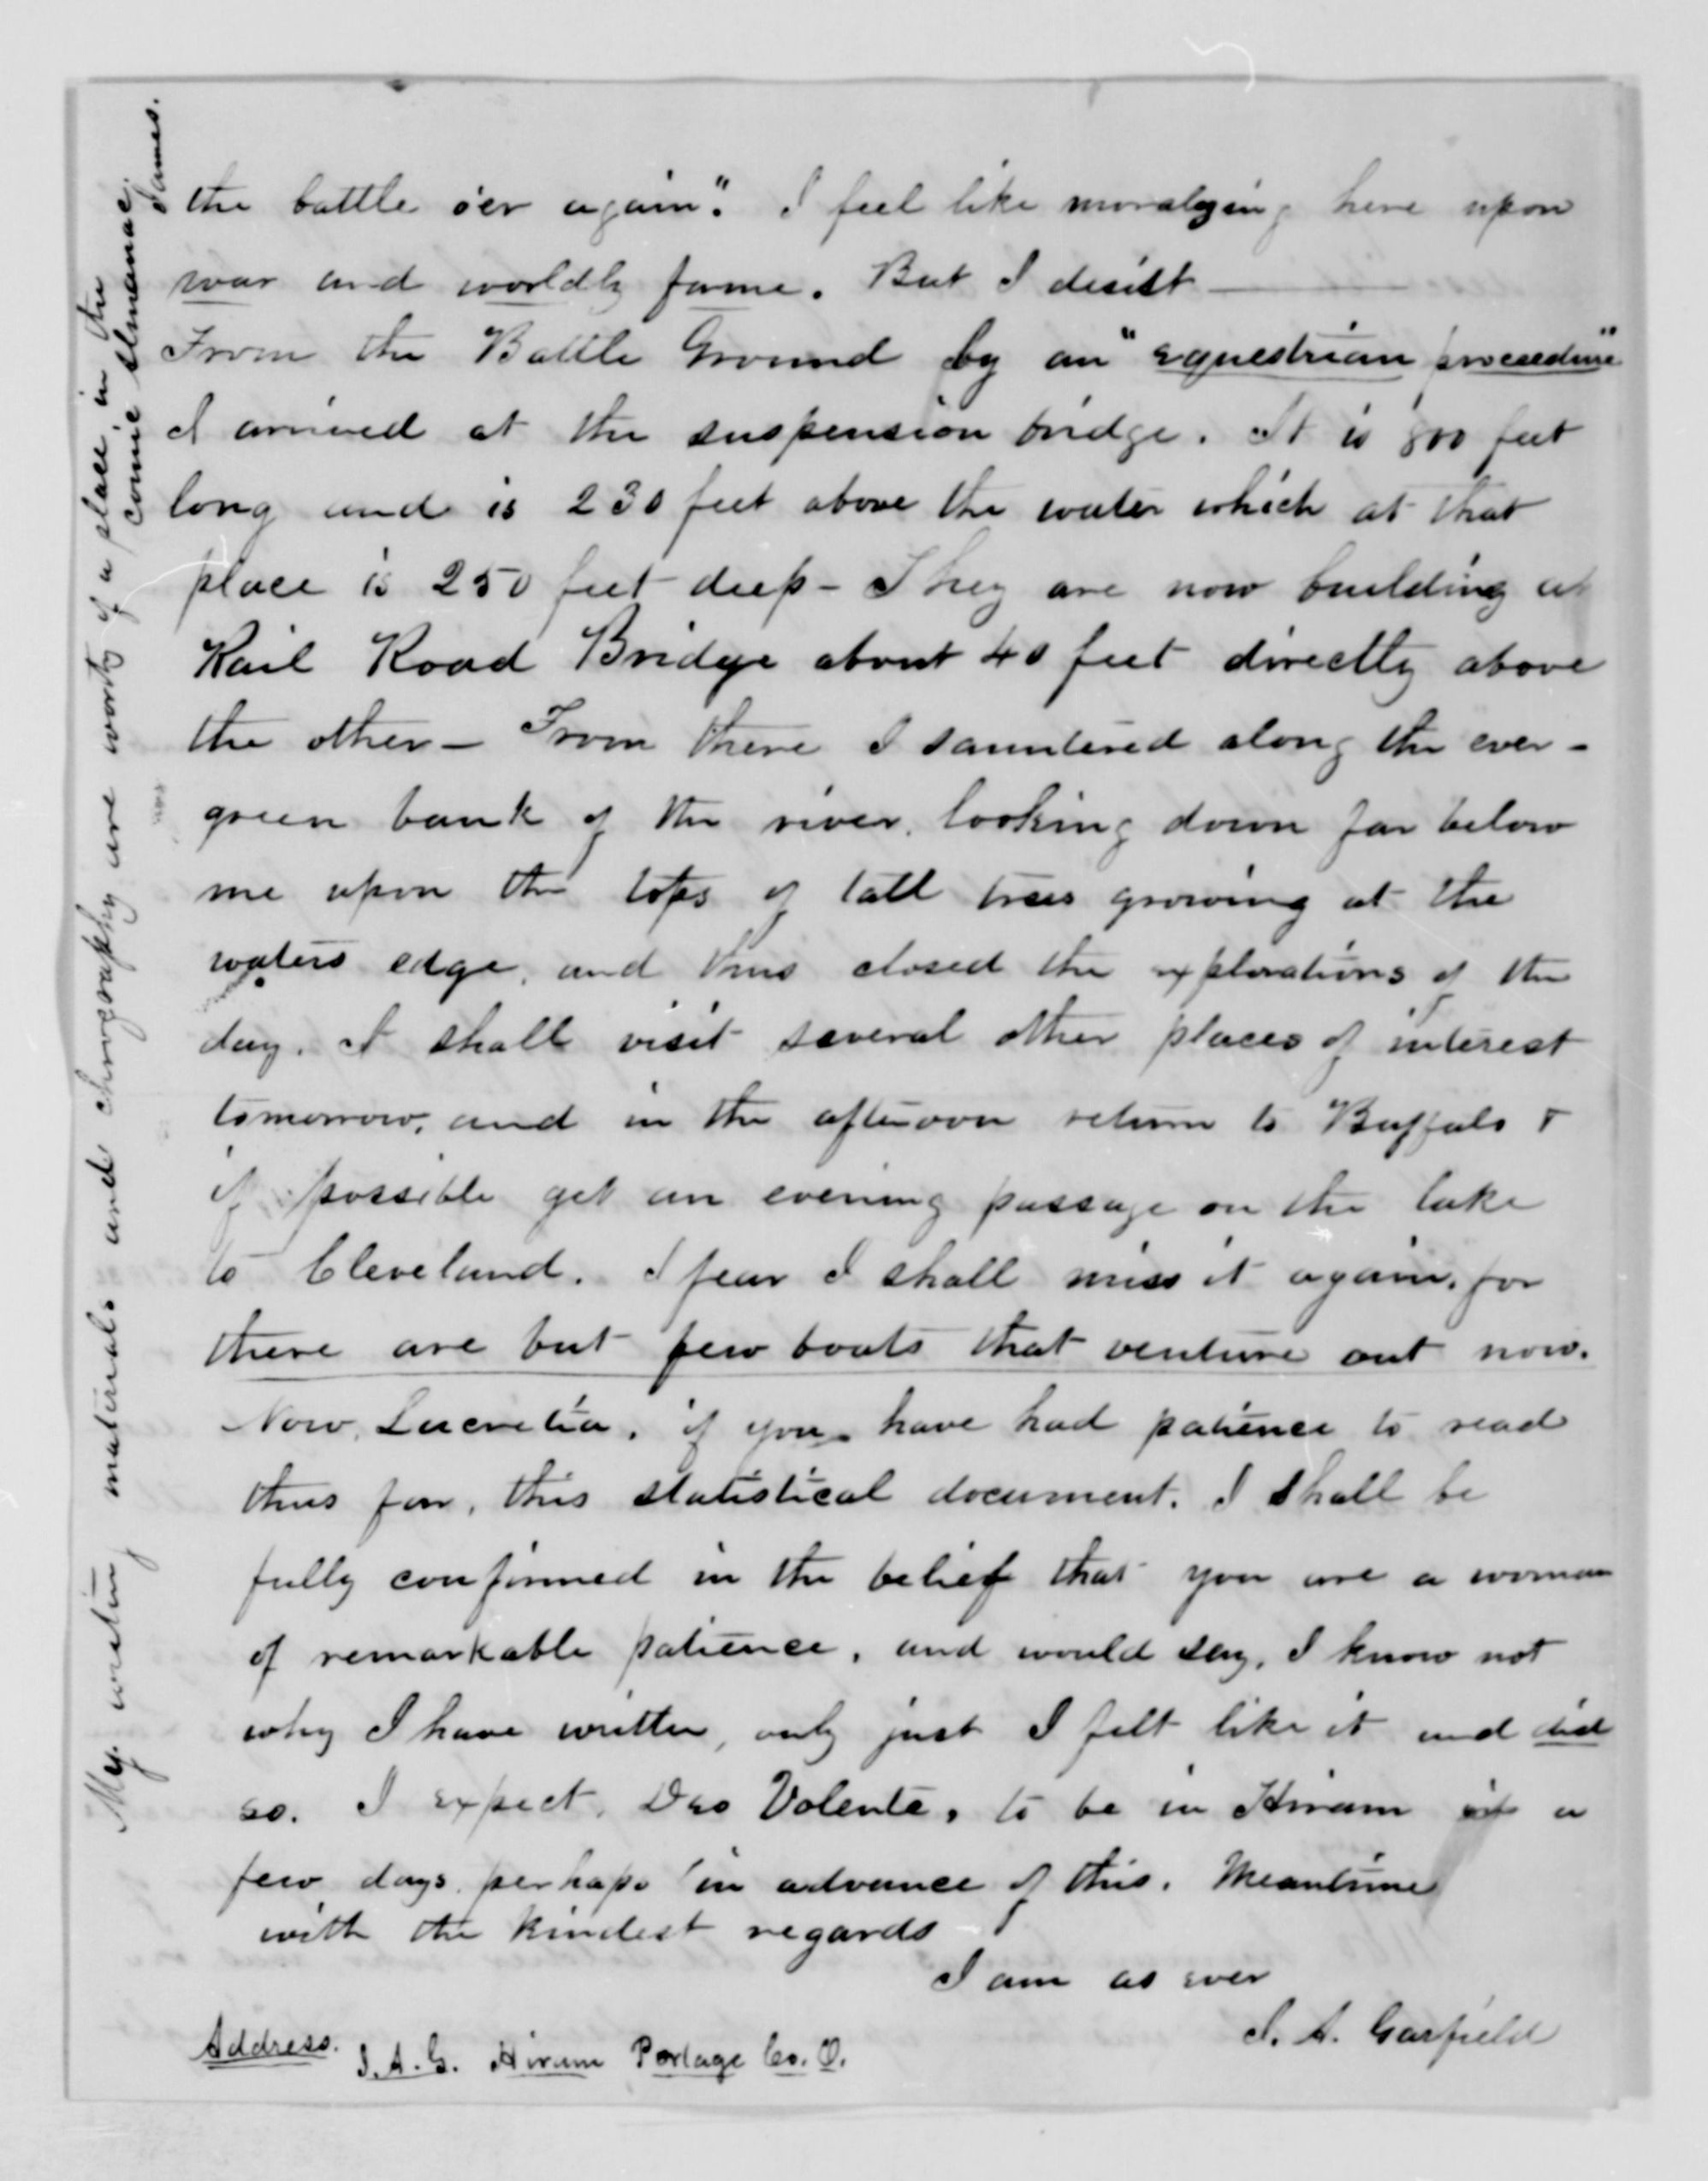 the battle o'er again". I feel like moralizing here upon
war and worldly fame. But I desist —
From the Battle Ground by an "equestrian procedure"
I arrived at the suspension bridge. It is 800 feet
long and is 230 feet above the water which at that
place is 250 feet deep - They are now building a
Rail Road Bridge about 40 feet directly above
the other - From there I sauntered along the ever-
green bank of the river, looking down far below
me upon the tops of tall trees growing at the
waters edge, and thus closed the explorations of the
day. I shall visit several other places of interest
tomorrow, and in the afternoon return to Buffalo &
if possible get an evening passage on the lake
to Cleveland. I fear I shall miss it again, for
there are but few boats that venture out now.
Now, Lucretia, if you have had patience to read
thus far, this statistical document, I shall be
fully confirmed in the belief that you are a woman
of remarkable patience, and would say, I know not
why I have written, only just I felt like it and did
so. I expect, Deo Volente, to be in Hiram in a
few days, perhaps in advance of this. Meantime
with the kindest regards
I am as ever
J. A. Garfield
Address. J. A. G. Hiram Portage Co. O.
My writing materials and chirography are worthy of a place in the
comic almanac.
James.